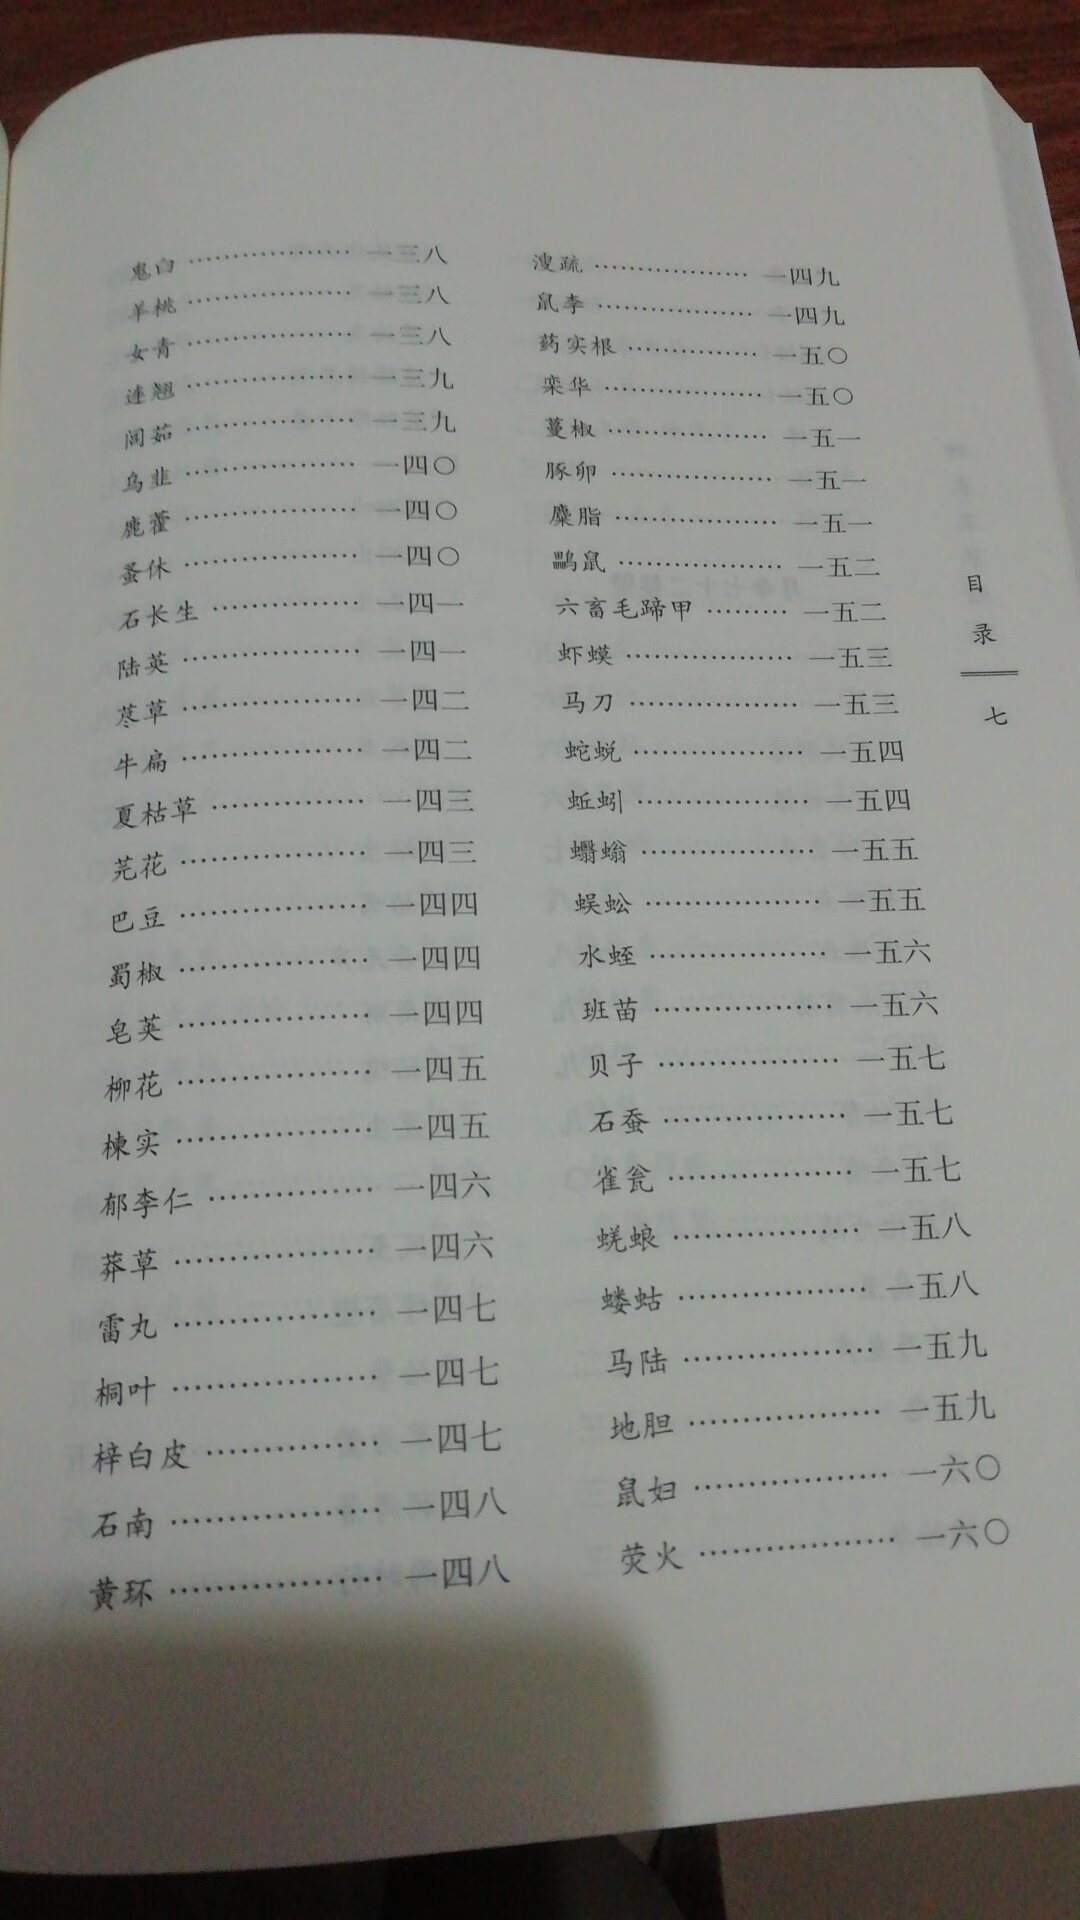 鬼臼 ……………… 一三八
羊桃 ……………… 一三八
女青 ……………… 一三八
连翘 ……………… 一三九
闾茹 ……………… 一三九
乌韭 ……………… 一四〇
鹿藿 ……………… 一四〇
蚤休 ……………… 一四〇
石长生 …………… 一四一
陆英 ……………… 一四一
荩草 ……………… 一四二
牛扁 ……………… 一四二
夏枯草 …………… 一四三
芫花 ……………… 一四三
巴豆 ……………… 一四四
蜀椒 ……………… 一四四
皂荚 ……………… 一四四
柳花 ……………… 一四五
楝实 ……………… 一四五
郁李仁 …………… 一四六
莽草 ……………… 一四六
雷丸 ……………… 一四七
桐叶 ……………… 一四七
梓白皮 …………… 一四七
石南 ……………… 一四八
黄环 ……………… 一四八
溲疏 ……………… 一四九
鼠李 ……………… 一四九
药实根 …………… 一五〇
栾华 ……………… 一五〇
蔓椒 ……………… 一五一
豚卵 ……………… 一五一
麋脂 ……………… 一五一
鸓鼠 ……………… 一五二
六畜毛蹄甲 ……… 一五二
虾蟆 ……………… 一五三
马刀 ……………… 一五三
蛇蜕 ……………… 一五四
蚯蚓 ……………… 一五四
蠮螉 ……………… 一五五
蜈蚣 ……………… 一五五
水蛭 ……………… 一五六
班苗 ……………… 一五六
贝子 ……………… 一五七
石蚕 ……………… 一五七
雀瓮 ……………… 一五七
蜣蜋 ……………… 一五八
蝼蛄 ……………… 一五八
马陆 ……………… 一五九
地胆 ……………… 一五九
鼠妇 ……………… 一六〇
荧火 ……………… 一六〇
目录
七